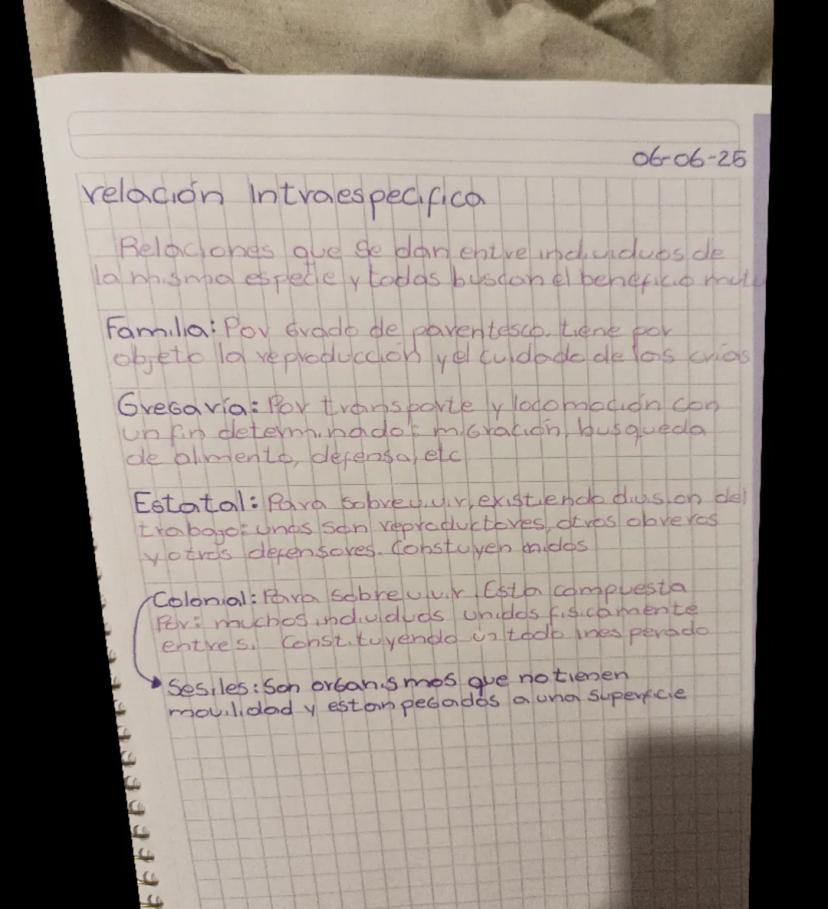 06-06-25
relación Intraespecifica
Relaciones que se dan entre individuos de
la misma especie y todas buscan el beneficio mutu
Familia: Por Grado de parentesco. tiene por
objeto la reproducción y el cuidado de las crías
Gregaria: Por transporte y locomoción con
un fin determinado: migración, busqueda
de alimento, defensa, etc
Estatal: Para sobrevivir, existiendo division del
trabajo: unos son reproductores, otros obreros
y otros defensores. Constuyen nidos
Colonial: Para sobrevivir. Esta compuesta
Por: muchos individuos unidos fisicamente
entre si. Constituyendo un todo inesperado
Sesiles: Son organismos que no tienen
movilidad y estan pegados a una superficie